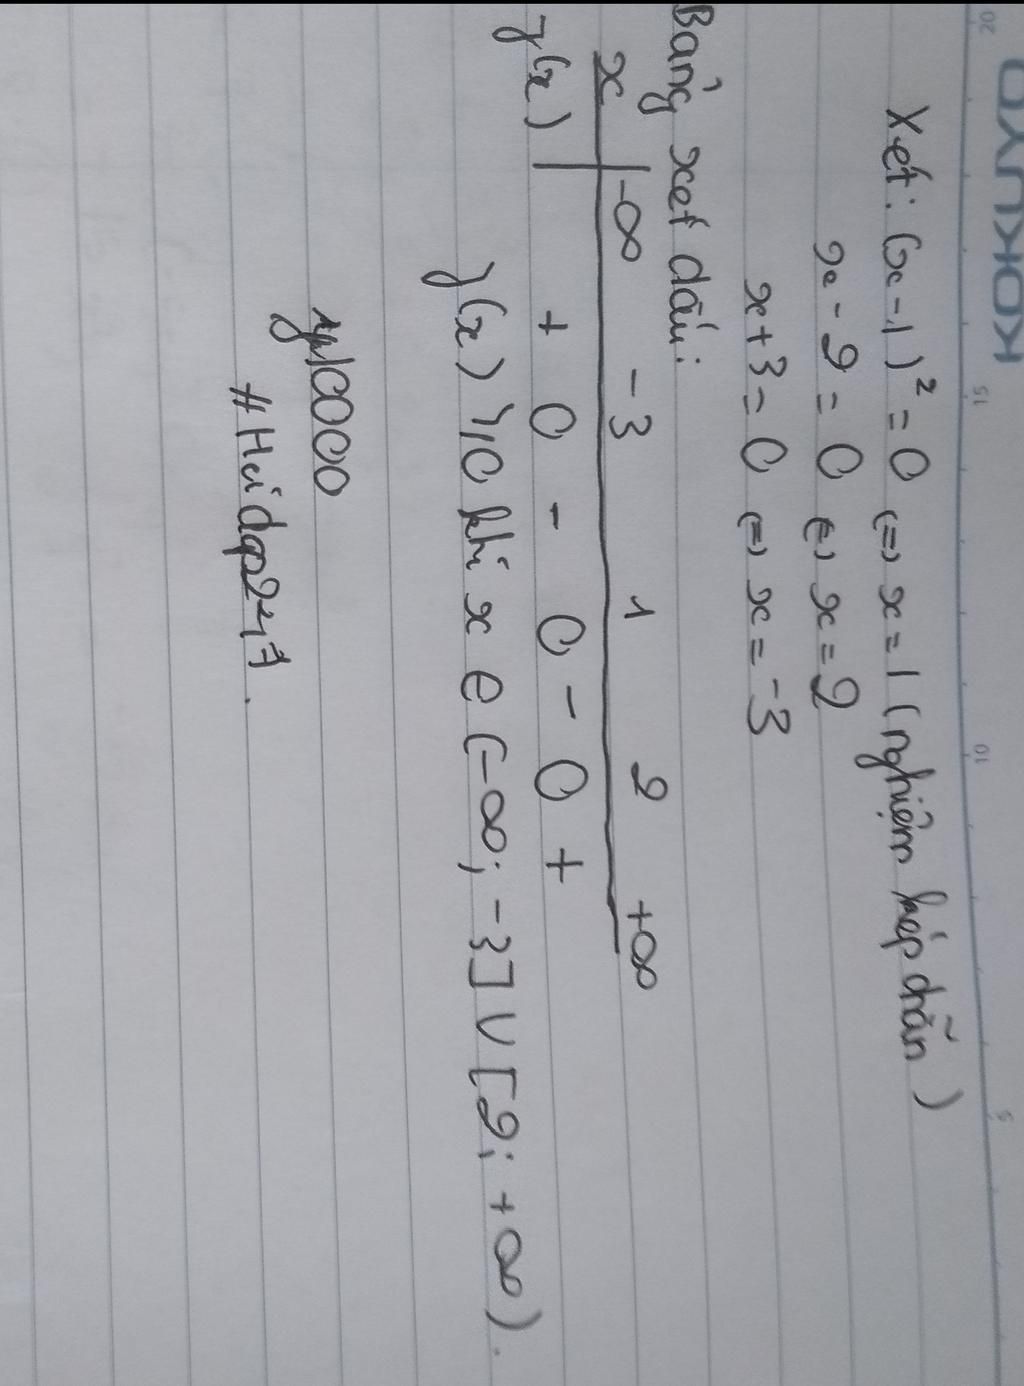 KOKUYO
20 15 10 5
Xét: (x-1)² = 0 (=) x = 1 (nghiệm kép chẵn)
x - 2 = 0 (=) x = 2
x + 3 = 0 (=) x = -3
Bảng xét dấu:
x | -∞ -3 1 2 +∞
f(x) | + 0 - 0 - 0 +
f(x) ≥ 0 khi x ∈ (-∞; -3] ∪ [2; +∞).
# Hỏi đáp 247.